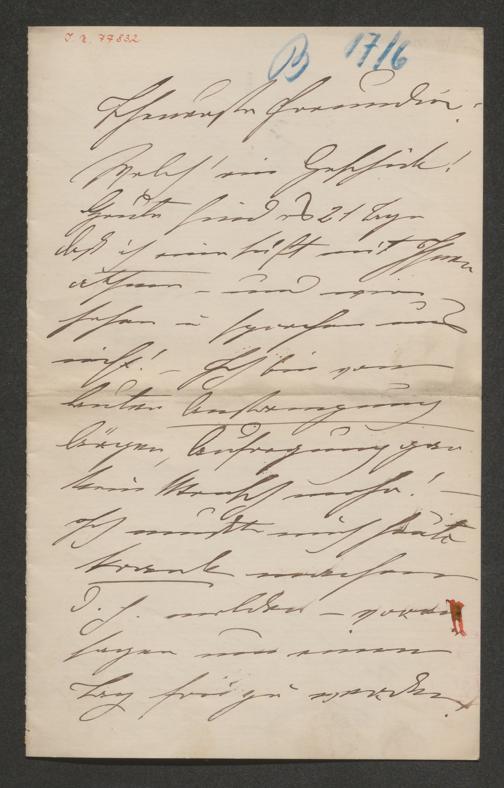 I. N. 77832
B 17/6
Theuerste Freundin!
Welch' ein Geschick!
Heute sind es 21 Tage
daß ich eine Luft mit Ihnen
athme – und wir
sehen u sprechen uns
nicht! – Ich bin vor
lauter Anstrengung
Aufregung gar
kein Mensch mehr! –
Ich mußte mich heute
krank machen
d. h. melden –
sagen um einen
Tag frei zu werden.